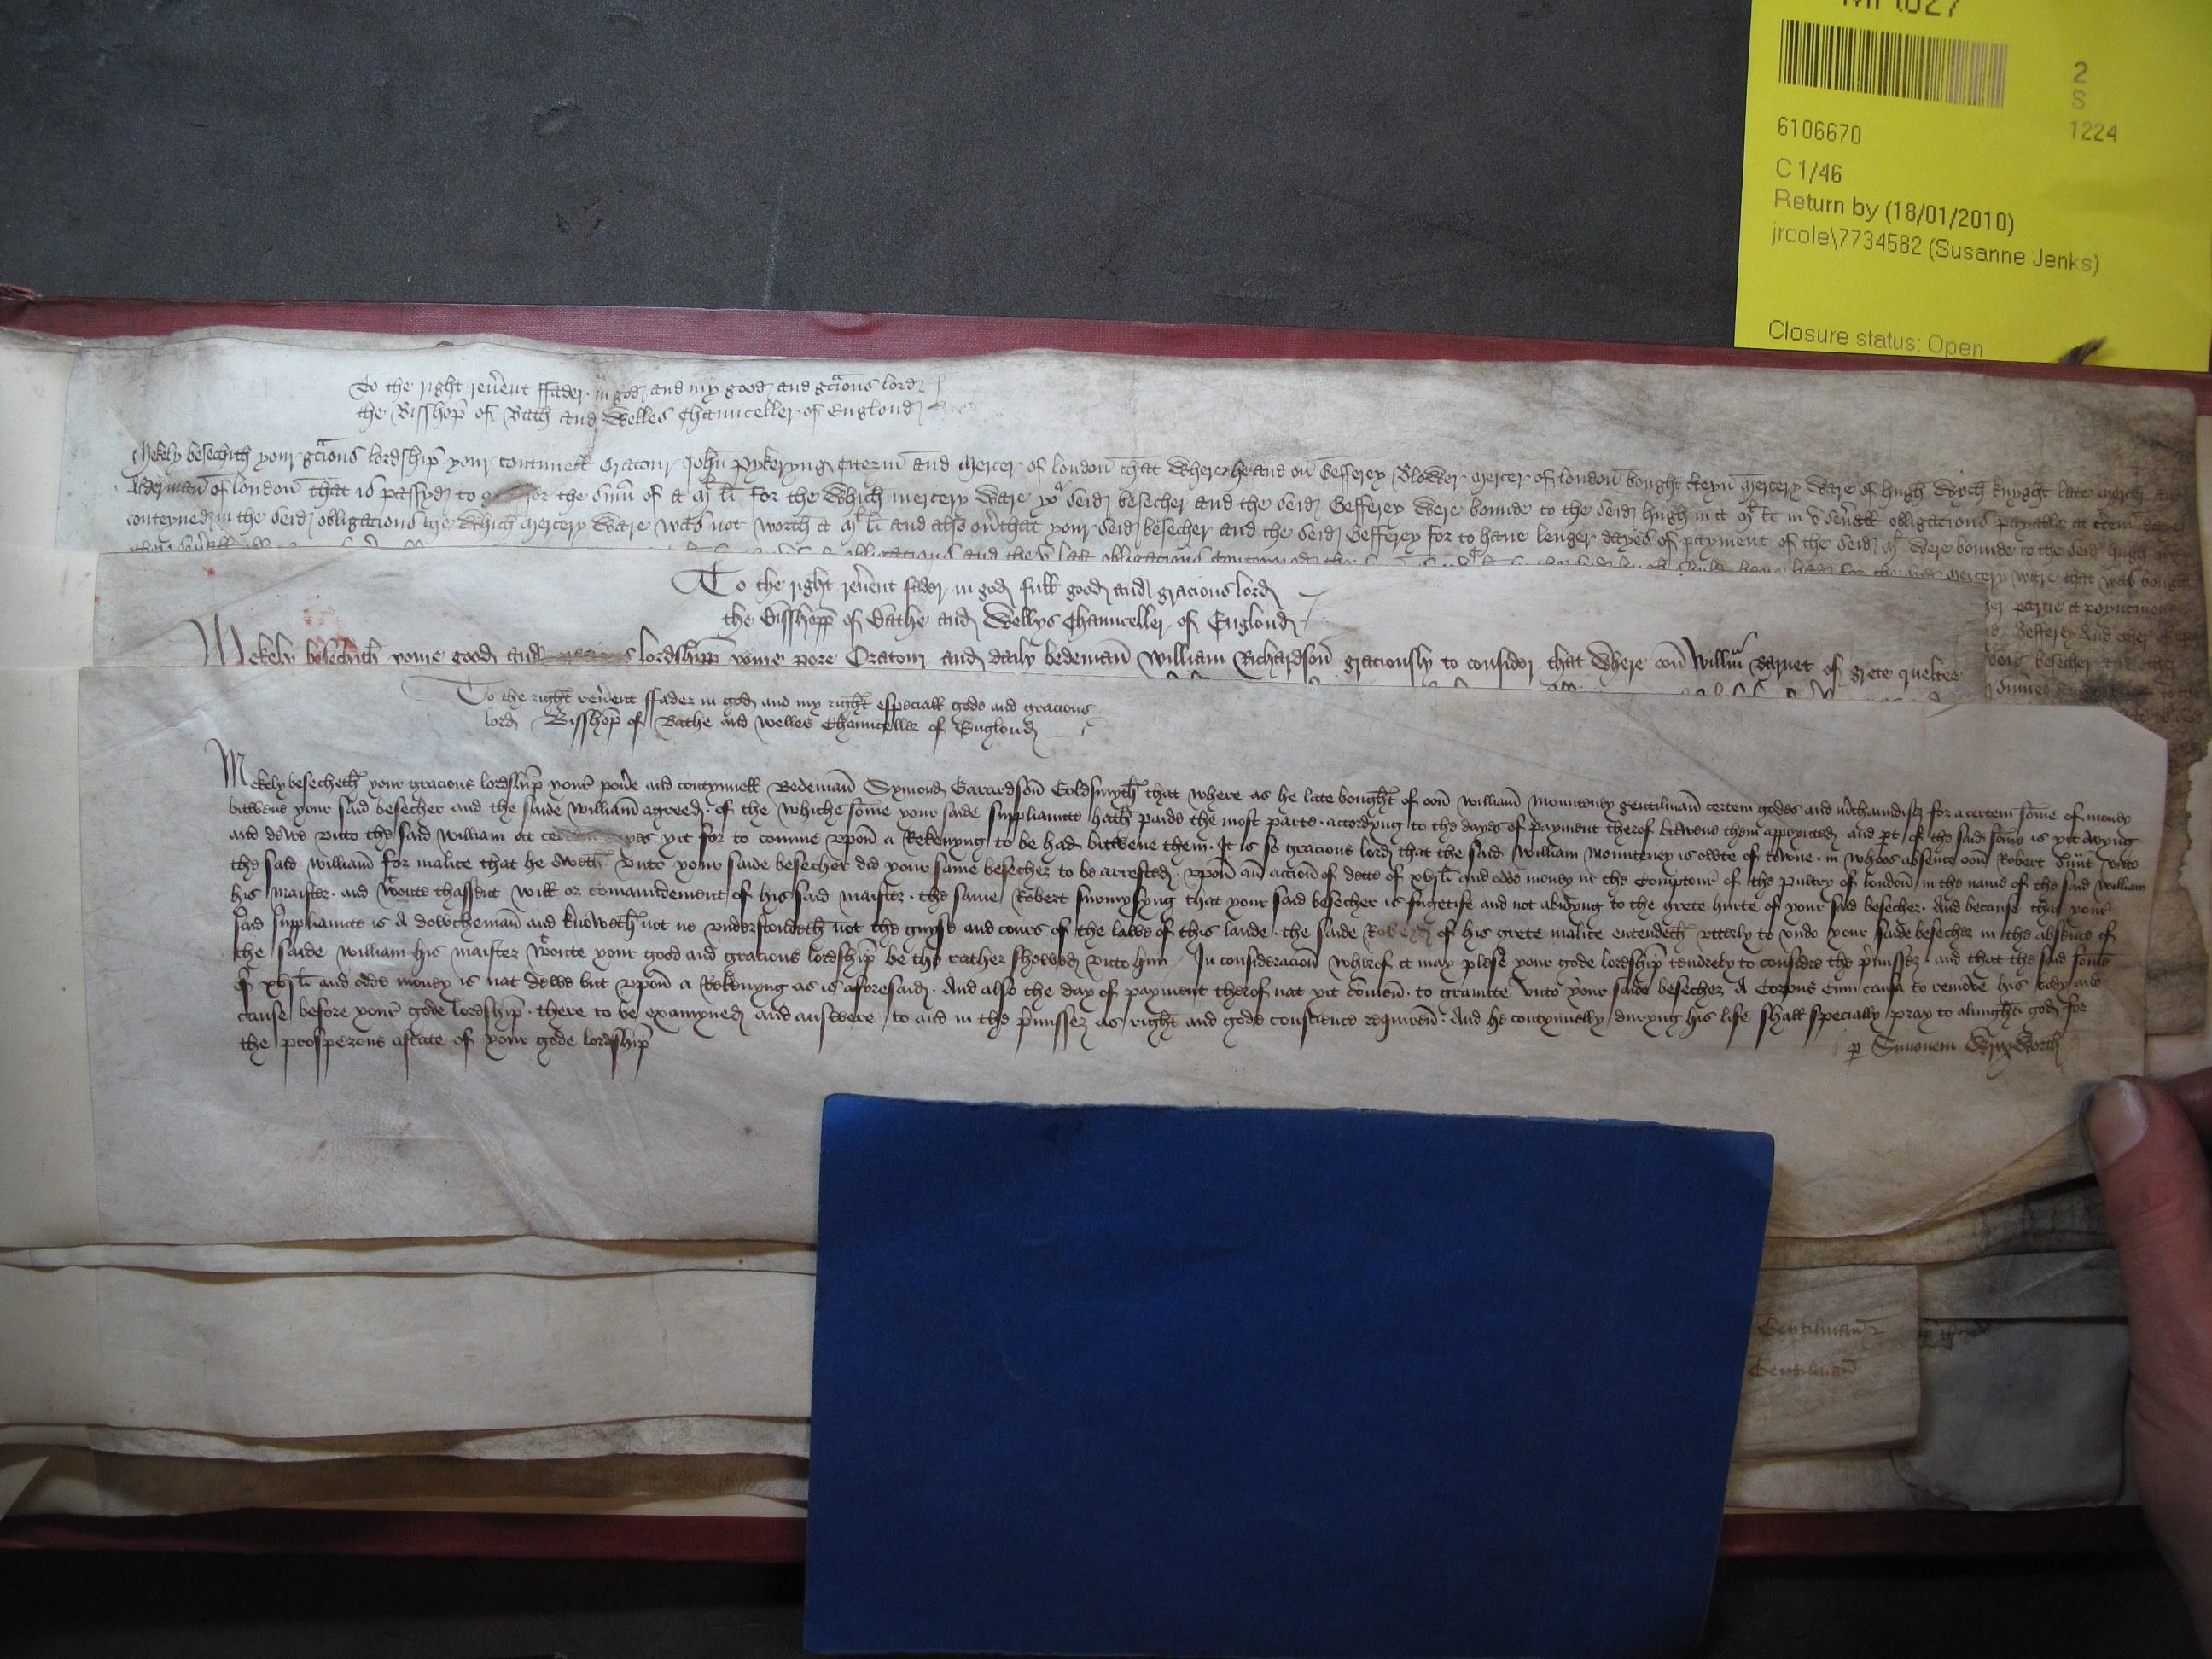 2
S
1224
6106670
C 1/46
Return by (18/01/2010)
jrcole\7734582 (Susanne Jenks)
Closure status: Open
To the right reu̾ent ffader in god and my good and gc̃ious lord
the Bisshop̃ of Bath and Welles Chaunceller of Englond
Mekely besechith your gc̃ious lordship̃ your contynuell Oratour John Pykeryng Citezin and Mercer of london that where he and on Gefferey Blower mercer of london bought mercery ware of hugh Wych knyght late mercer and
Alderman of london that is passyd to for the sum̃ of a Ml li for the which mercery ware yor seid besecher and the seid Gefferey were bounde to the seid hugh in a Ml li in seu̾all obligacions payable at dayes
conteyned in the seid obligacions the which mercery ware was not worth a Ml li and also ou̾ that your seid besecher and the seid Gefferey for to haue lenger dayes of payment of the seid Ml were bounde to the seid hugh
obligacions and the obligacions conteyned mercery ware that was bought
partie a poyntment
Gefferey And
seid besecher and
To the right reu̾ent fader in god full good and gracious lord
the Bisshopp of Bathe and Wellys Chaunceller of Englond
Mekely besechith youre good and gracious lordshipp youre pore Oratour and daily bedeman William Richardson graciously to consider that where oon Willm̃ Barnet of grete
Gentilman
Gentilman
To the right reu̾ent ffader in god and my right especiall gode and gracious
lord Bisshop̃ of Bathe and Welles Chaunceller of Englond
Mekely besecheth your gracious lordship̃ your pou̾e and contynuell Bedeman Symond Garardson Goldsmyth that where as he late bought of oon William Mounteney gentilman certein godes and m̾chaundisez for a certein som̃e of money
bitwene your said besecher and the saide William agreed. of the whiche som̃e your saide suppliaunte hath paide the most parte. accordyng to the dayes of payment therof bitwene them appoynted. and pt of the said som̃e is yit owyng
and dewe vnto the said William at dayes yit for to comme vpon a Rekenyng to be had bitwene them. It is so gracious lord that the said William Mounteney is owte of towne. in whoos absence oon Robert seru̾nt vnto
the said William for malice that he oweth vnto your saide besecher did your same besecher to be arrested. vpon an accion of dette of xvj li and odde money in the Comptour of the pultry of london in the name of the said William
his maister. and wtoute thassent will or comaundement of his said maister. the same Robert surmysyng that your said besecher is fugetife and not abidyng to the grete hurte of your said besecher. And because that your
said suppliaunte is a dowcheman and knoweth not ne vnderstondeth not the guyse and cours of the lawe of this lande. the saide Robert of his grete malice entendeth vtterly to vndo your saide besecher in the absence of
the saide William his maister wtoute your good and gracious lordship̃ be the rather shewed vnto hym. In consideracion wherof it may plese your gode lordship̃ tenderly to considre the p̾missez. and that the said som̃e
of xvj li and odde money is nat dewe but vpon a Rekenyng as is aforesaid. And also the day of payment therof nat yit comen. to graunte vnto your saide besecher A Corpus cum causa to remeve his body and
cause before your gode lordship̃. there to be examyned and answere to and in the p̾missez as right and gode conscience requiren. And he contynuelly duryng his life shall specially pray to almighti god for
the prosperous astate of your gode lordship̃
p Simonem Wryxworth